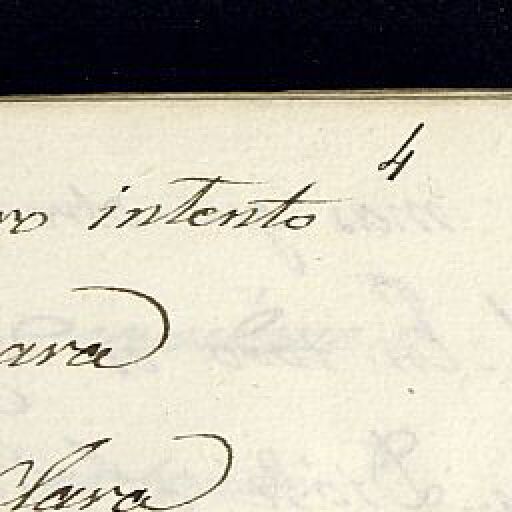 4
intento
ara
Clara